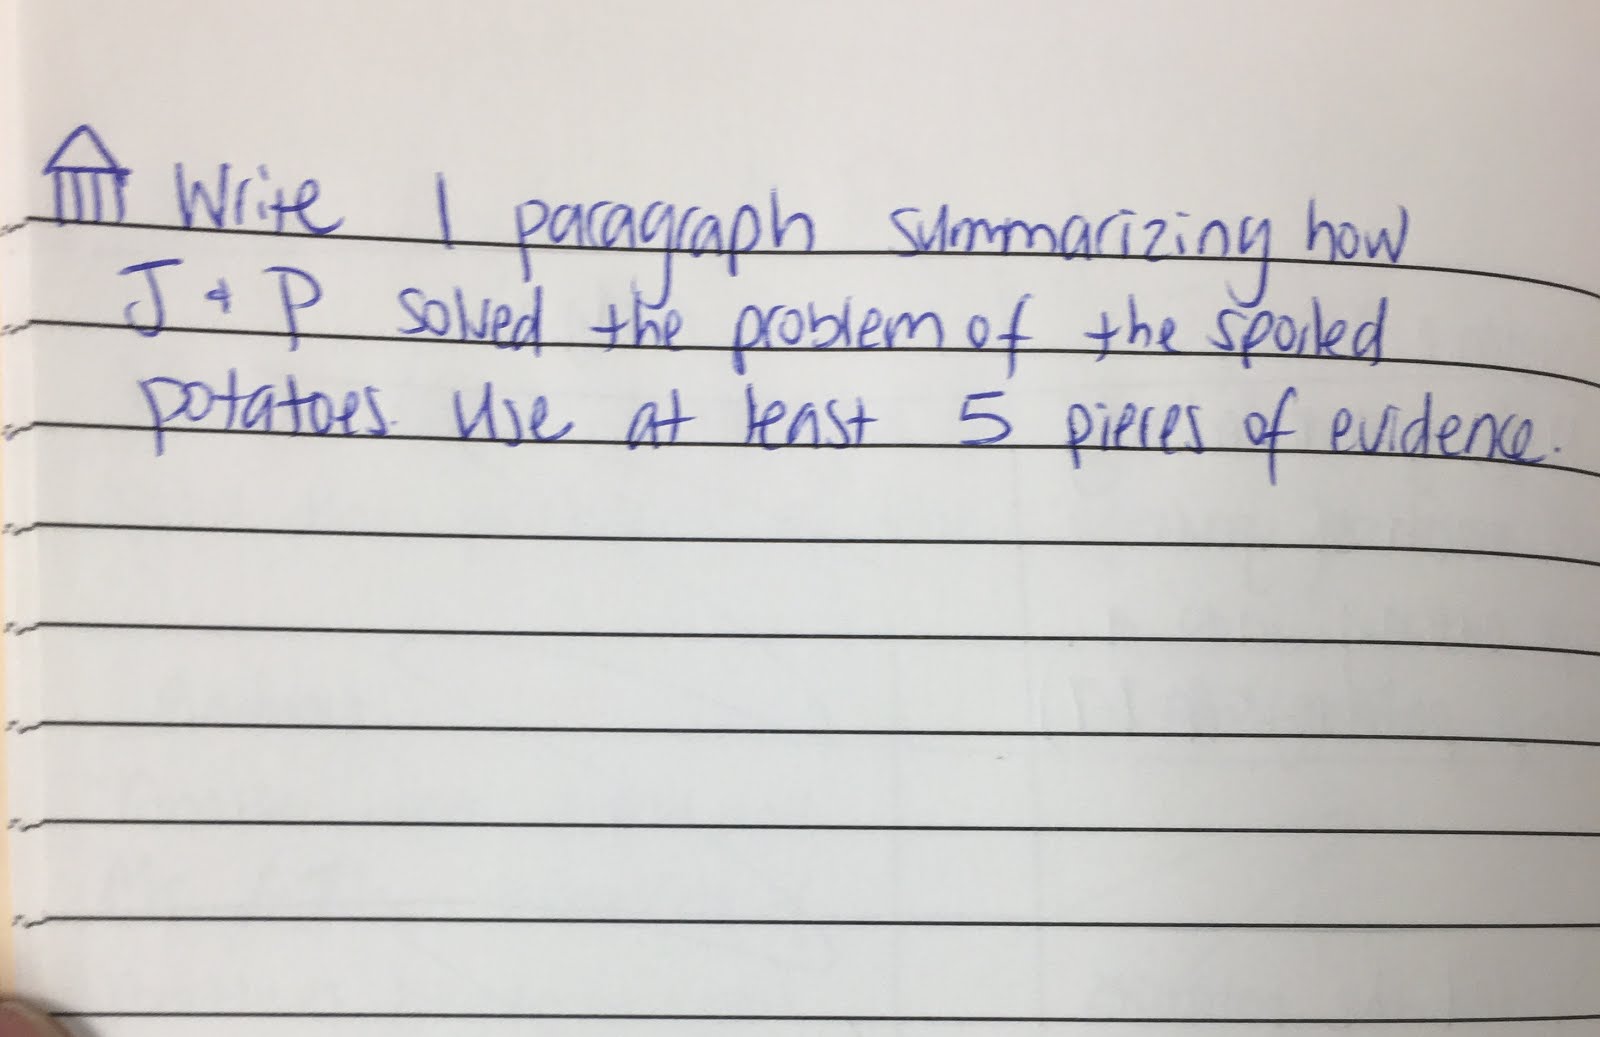 Write 1 paragraph summarizing how
J + P solved the problem of the spoiled
potatoes. Use at least 5 pieces of evidence.